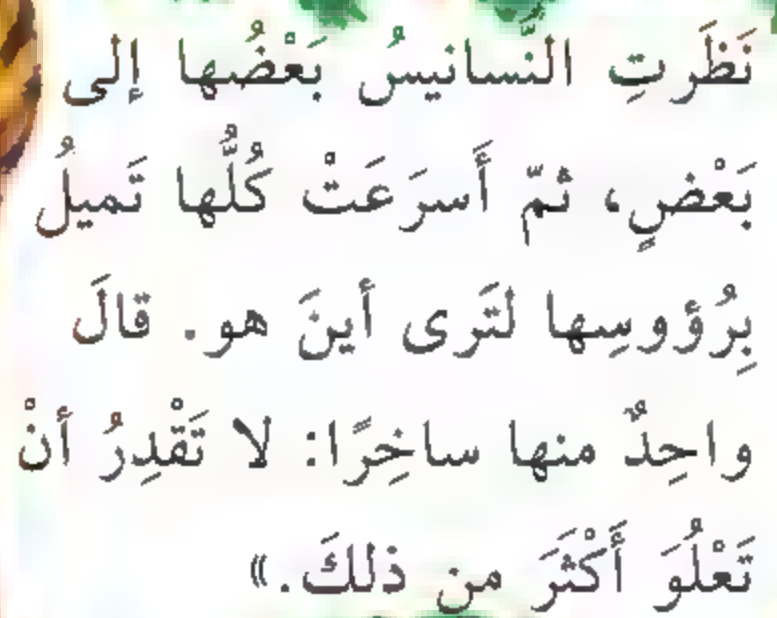 نَظَرتِ النَّسانيسُ بَعْضُها إلى
بَعْضٍ، ثمّ أَسرَعَتْ كُلُّها تَميلُ
بِرُؤوسِها لتَرى أينَ هو. قالَ
واحِدٌ منها ساخِرًا: لا تَقْدِرُ أنْ
تَعْلُوَ أَكْثَرَ من ذلكَ.»